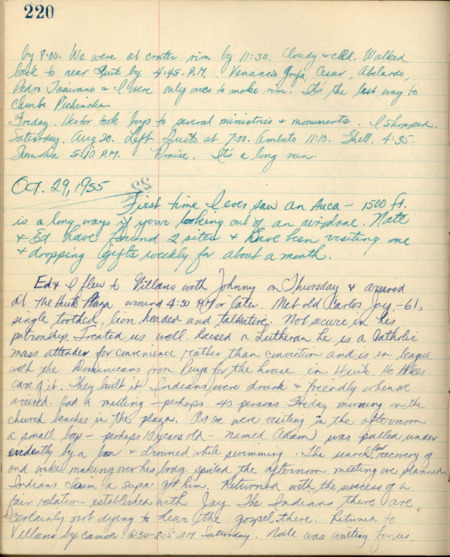 220
by 8:00. We were at crater rim by 11:30. Cloudy & cold. Walked
back to near Quito by 4:45 P.M. Venancio, Cesar, Abelardo,
Pedro & I were only ones to make rim. It's the last way to
climb Pichincha.
Friday, took boys to several ministries & monuments. I shopped.
Saturday, Aug 20. Left Quito at 7:00. Ambato 11:10. Shell 4:35
5:10 P.M. It's a long run.
Oct. 29, 1955
First time I ever saw an Auca – 1500 ft.
is a long ways if your looking out of an airplane. Nate
& Ed have found 2 sites & have been visiting one
& dropping gifts weekly for about a month.
Ed & I flew to Villano with Johnny on Thursday & arrived
at the around 4:30 P.M. or later. Met old Carlos – 61,
single toothed, lion headed and talkative. Not secure in his
Treated us well. Raised a Lutheran he is a Catholic
mass attender for convenience rather than conviction and is in league
with the Dominicans from Puyo for the house in He takes
care of it. They built it. Indians were drunk & friendly when we
arrived. Had a meeting – perhaps 40 persons Friday morning on the
church benches in the plaza. As we were visiting in the afternoon
a small boy – perhaps 10 years old – named Adam was pulled under
evidently by a boa & drowned while swimming. The search for, recovery of
and wake making over his body spoiled the afternoon meeting we planned
Indians claim a supai got him. Returned with the success of a
fair relation established with The Indians there are
certainly not dying to hear the gospel there. Returned to
Villano by canoe 6:30 A.M. Saturday. Nate was waiting for us.